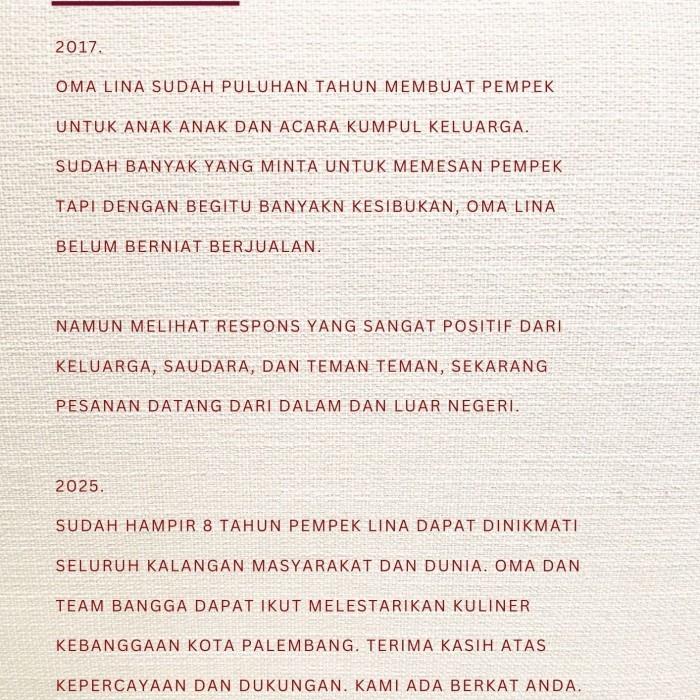 2017.
OMA LINA SUDAH PULUHAN TAHUN MEMBUAT PEMPEK
UNTUK ANAK ANAK DAN ACARA KUMPUL KELUARGA.
SUDAH BANYAK YANG MINTA UNTUK MEMESAN PEMPEK
TAPI DENGAN BEGITU BANYAKN KESIBUKAN, OMA LINA
BELUM BERNIAT BERJUALAN.
NAMUN MELIHAT RESPONS YANG SANGAT POSITIF DARI
KELUARGA, SAUDARA, DAN TEMAN TEMAN, SEKARANG
PESANAN DATANG DARI DALAM DAN LUAR NEGERI.
2025.
SUDAH HAMPIR 8 TAHUN PEMPEK LINA DAPAT DINIKMATI
SELURUH KALANGAN MASYARAKAT DAN DUNIA. OMA DAN
TEAM BANGGA DAPAT IKUT MELESTARIKAN KULINER
KEBANGGAAN KOTA PALEMBANG. TERIMA KASIH ATAS
KEPERCAYAAN DAN DUKUNGAN. KAMI ADA BERKAT ANDA.